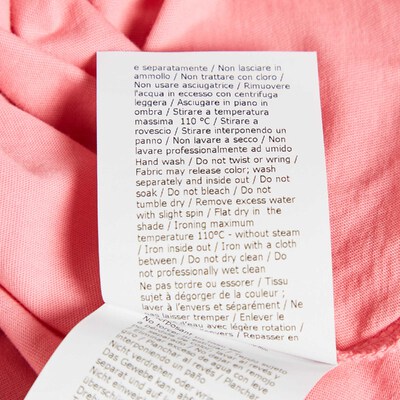 e separatamente / Non lasciare in
ammollo / Non trattare con cloro /
Non usare asciugatrice / Rimuovere
l'acqua in eccesso con centrifuga
leggera / Asciugare in piano in
ombra / Stirare a temperatura
massima 110 °C / Stirare a
rovescio / Stirare interponendo un
panno / Non lavare a secco / Non
lavare professionalmente ad umido
Hand wash / Do not twist or wring /
Fabric may release color; wash
separately and inside out / Do not
soak / Do not bleach / Do not
tumble dry / Remove excess water
with slight spin / Flat dry in the
shade / Ironing maximum
temperature 110°C - without steam
/ Iron inside out / Iron with a cloth
between / Do not dry clean / Do
not professionally wet clean
Ne pas tordre ou essorer / Tissu
sujet à dégorger de la couleur ;
laver à l'envers et séparément / Ne
laisser tremper / Enlever le
d'eau avec légère rotation /
/ Repasser en
de agua con
/ Planchar
interponiendo un paño
Nicht verdrehen oder
Das Gewebe kann
Nicht